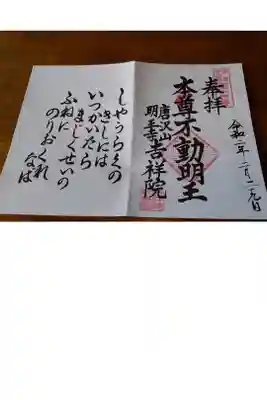 奉拝
令和二年二月二九日
本尊不動明王
唐沢山
明王寺吉祥院
しやうらくの
きしには
いつかいたら
まじくせいの
ふねに
のりおくれ
なは